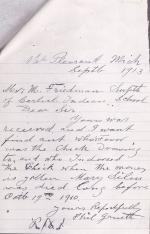 Mt Pleasant Mich
Sept 6 1913
Mr. M. Friedman Supt
of Carlisle Indian School
Dear Sir
Yours was
received and I want
find out
was the Check
to, and who Indorsed
the Check when the money
is gotten Mary Silas
was died long before
Oct 19th 1910.
Yours Respectfully
Phil Gruett